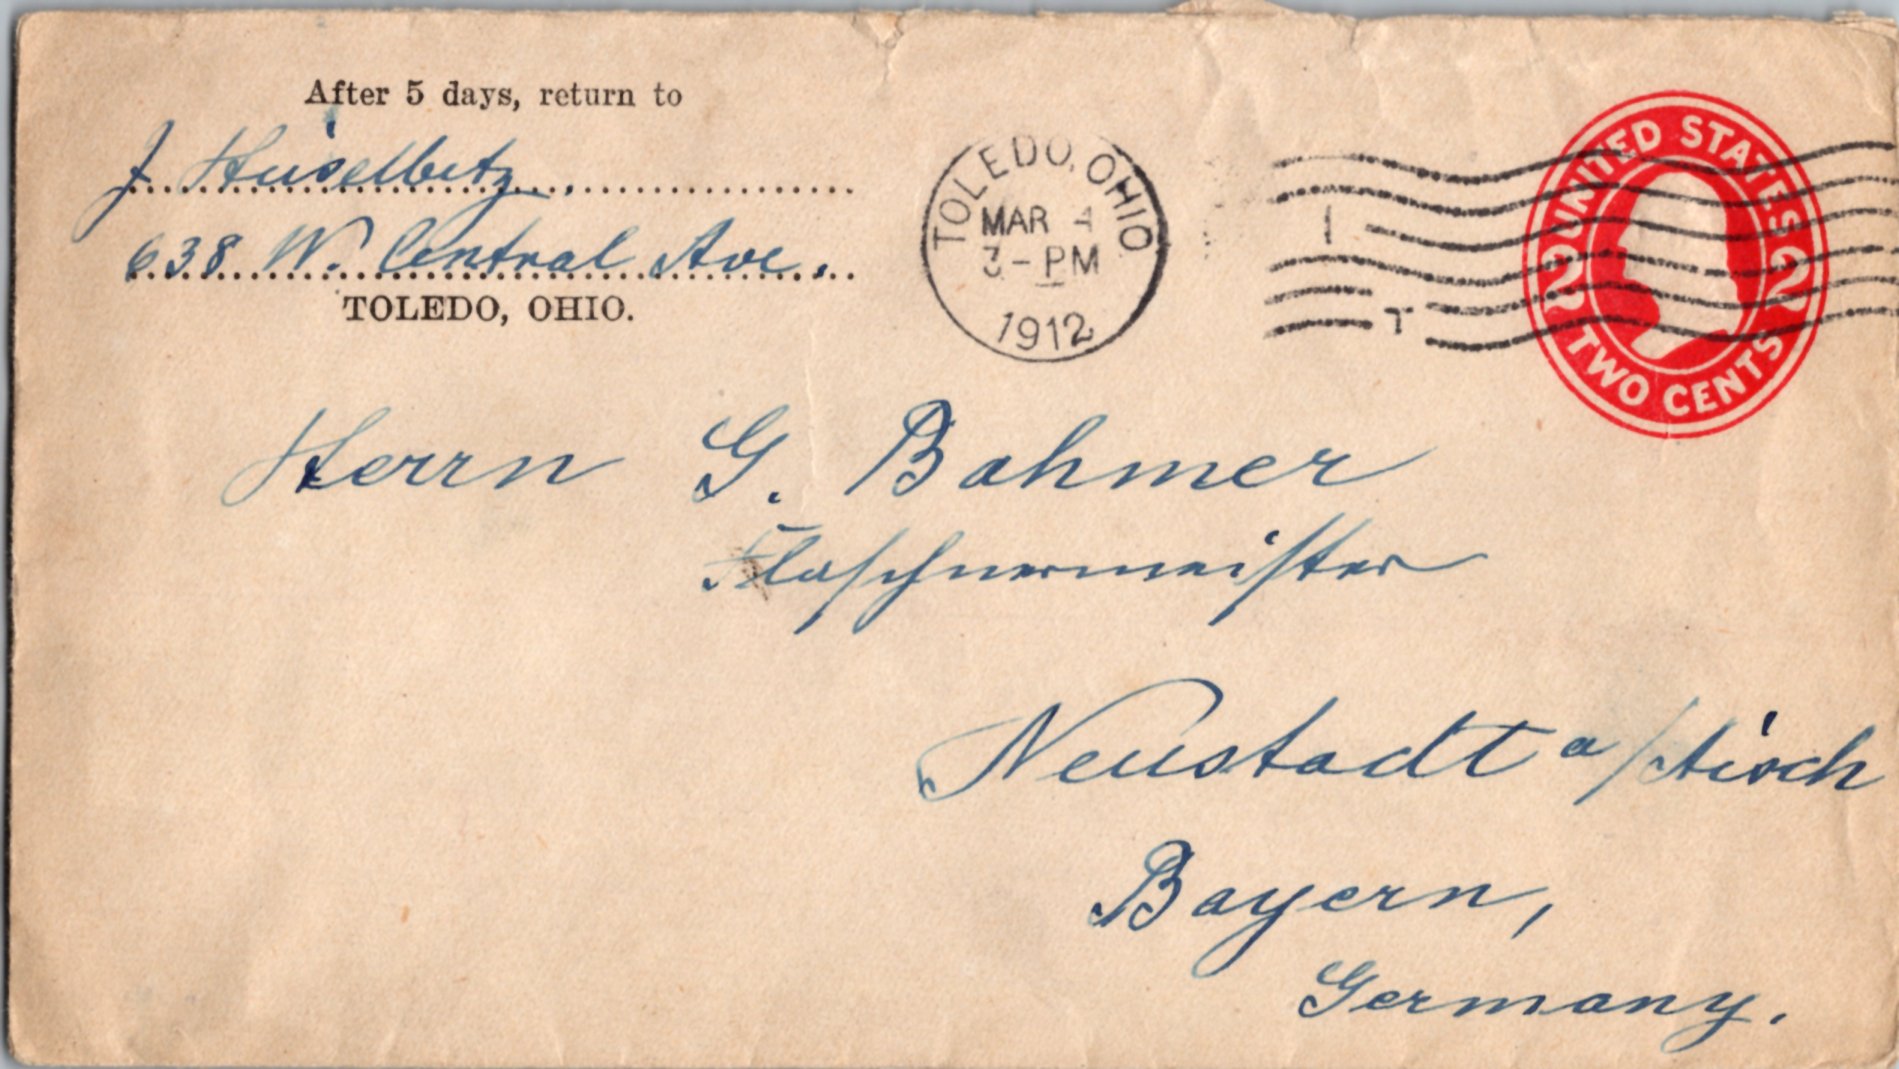 After 5 days, return to
J. Huselbetz
638 W. Central Ave.
TOLEDO, OHIO.
TOLEDO, OHIO
MAR 4
3-PM
1912
1
T
UNITED STATES
2 2
TWO CENTS
Herrn G. Bahmer
Flaschnermeister
Neustadt a/Aisch
Bayern,
Germany.